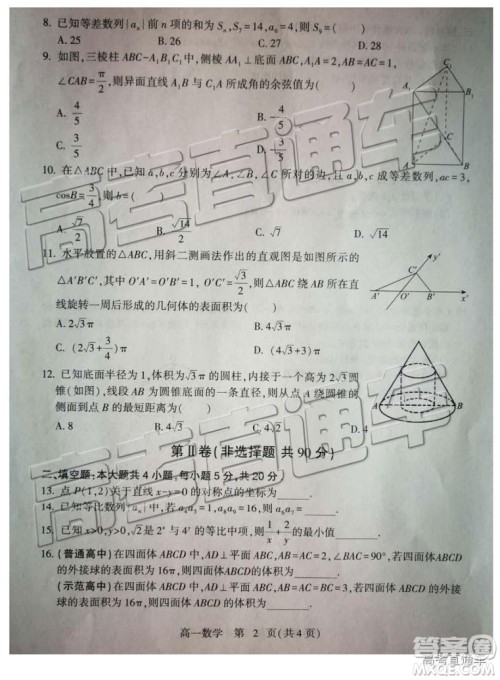 8. 已知等差数列{aₙ}前 n 项的和为 Sₙ,S₇=14,a₄=3,则S₈=( )
A. 25 B. 26 C. 27 D. 28
9. 如图,三棱柱 ABC-A₁B₁C₁中,侧棱 AA₁⊥底面 ABC,A₁A=2,AB=AC=1,
∠CAB=π/2,则异面直线 A₁B 与 C₁A 所成角的余弦值为( )
A. 4/5 B. -4/5
C. 3/5 D. -3/5
10. 在△ABC 中,已知 a,b,c 分别为∠A,∠B,∠C 所对的边,且 a,b,c 成等差数列,ac=3,
cosB=3/4,则 b=( )
A. √7/2 B. √14/2 C. √7 D. √14
11. 水平放置的△ABC,用斜二测画法作出的直观图是如图所示的
△A′B′C′,其中 O′A′=O′B′=2,O′C′=√3/2,则△ABC 绕 AB 所在直
线旋转一周后形成的几何体的表面积为( )
A. 2√3π B. 4√3π
C. (2√3+3/4)π D. (4√3+3)π
12. 已知底面半径为1,体积为√3π的圆柱,内接于一个高为2√3圆
锥(如图),线段 AB 为圆锥底面的一条直径,则从点 A 绕圆锥的
侧面到点 B 的最短距离为( )
A. 8 B. 4√3 C. 4√2 D. 4
第Ⅱ卷(非选择题 共 90 分)
二、填空题:本大题共 4 小题,每小题 5 分,共 20 分
13. 点 P(1,2)关于直线 x-y=0 的对称点的坐标为
14. 已知等比数列{aₙ}中,
15. 已知 x>0,y>0,2是 2ˣ与 4ʸ的等比中项,则1/x+2/y的最小值
16. (普通高中)在四面体 ABCD 中,AD⊥平面 ABC,AB=AC=2,∠BAC=90°,若四面体ABCD
的外接球的表面积为 16π,则四面体 ABCD 的体积为
(示范高中)在四面体 ABCD 中,AD⊥平面 ABC,AB=AC=BC=3,若四面体 ABCD 的外接
球的表面积为 16π,则四面体 ABCD 的体积为
高一数学 第 2 页(共 4 页)
A₁
B₁
C₁
A
B
C
y′
C′
A′
O′
B′
x′
A
B
高考直通车
高考直通车
答案圈
MXQE.COM
高考直通车